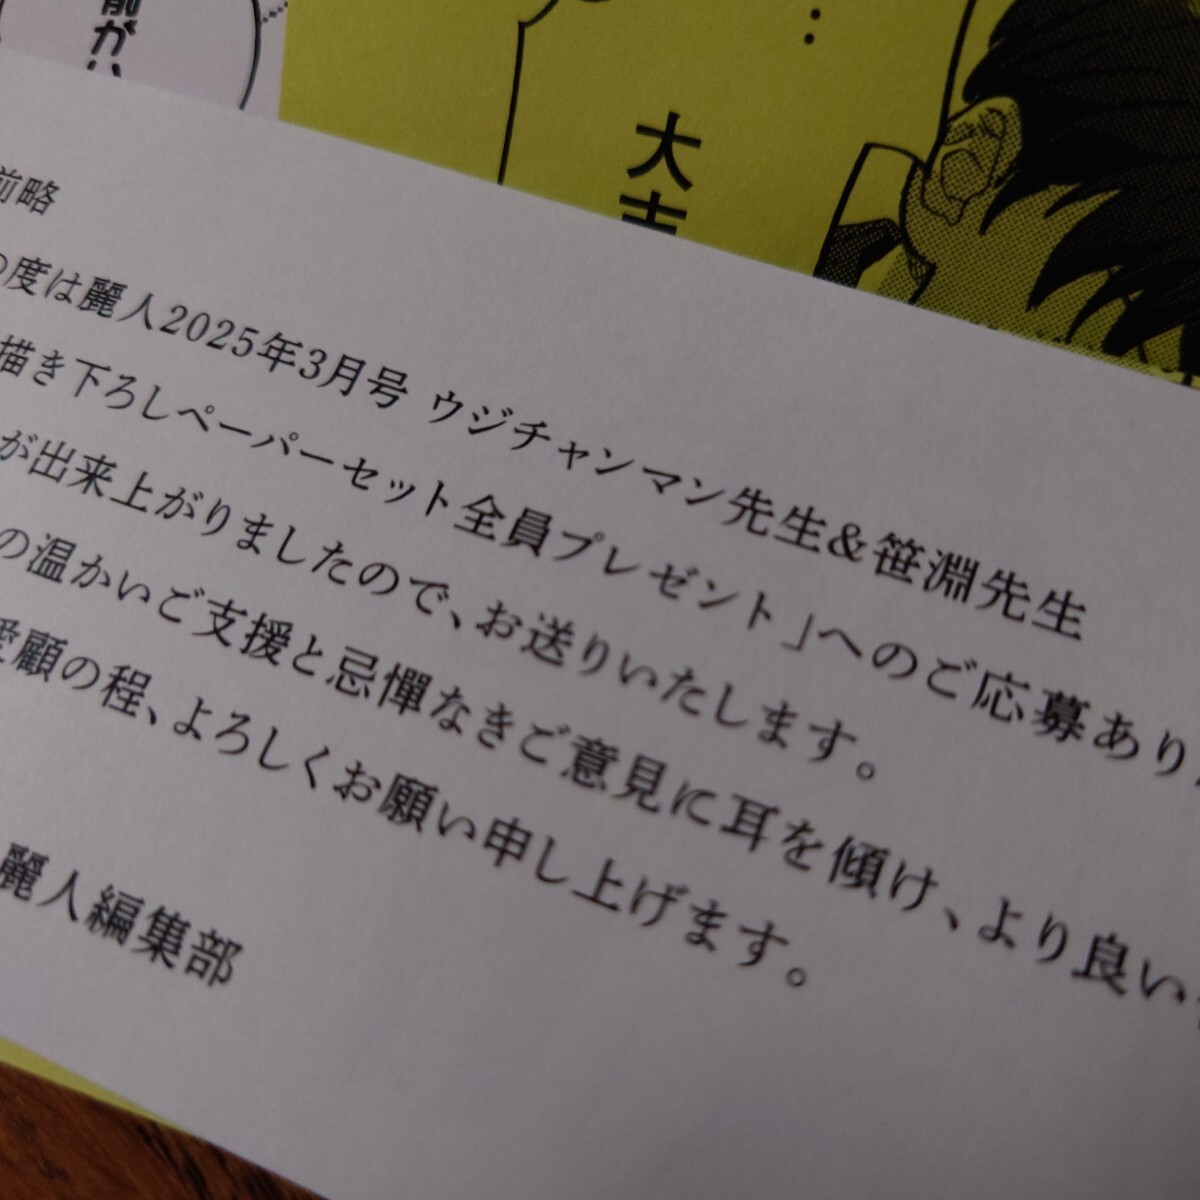 前がい
…
大吉
前略
の度は麗人2025年3月号 ウジチャンマン先生&笹淵先生
描き下ろしペーパーセット全員プレゼント」へのご応募あり
が出来上がりましたので、お送りいたします。
の温かいご支援と忌憚なきご意見に耳を傾け、より良い
愛顧の程、よろしくお願い申し上げます。
麗人編集部